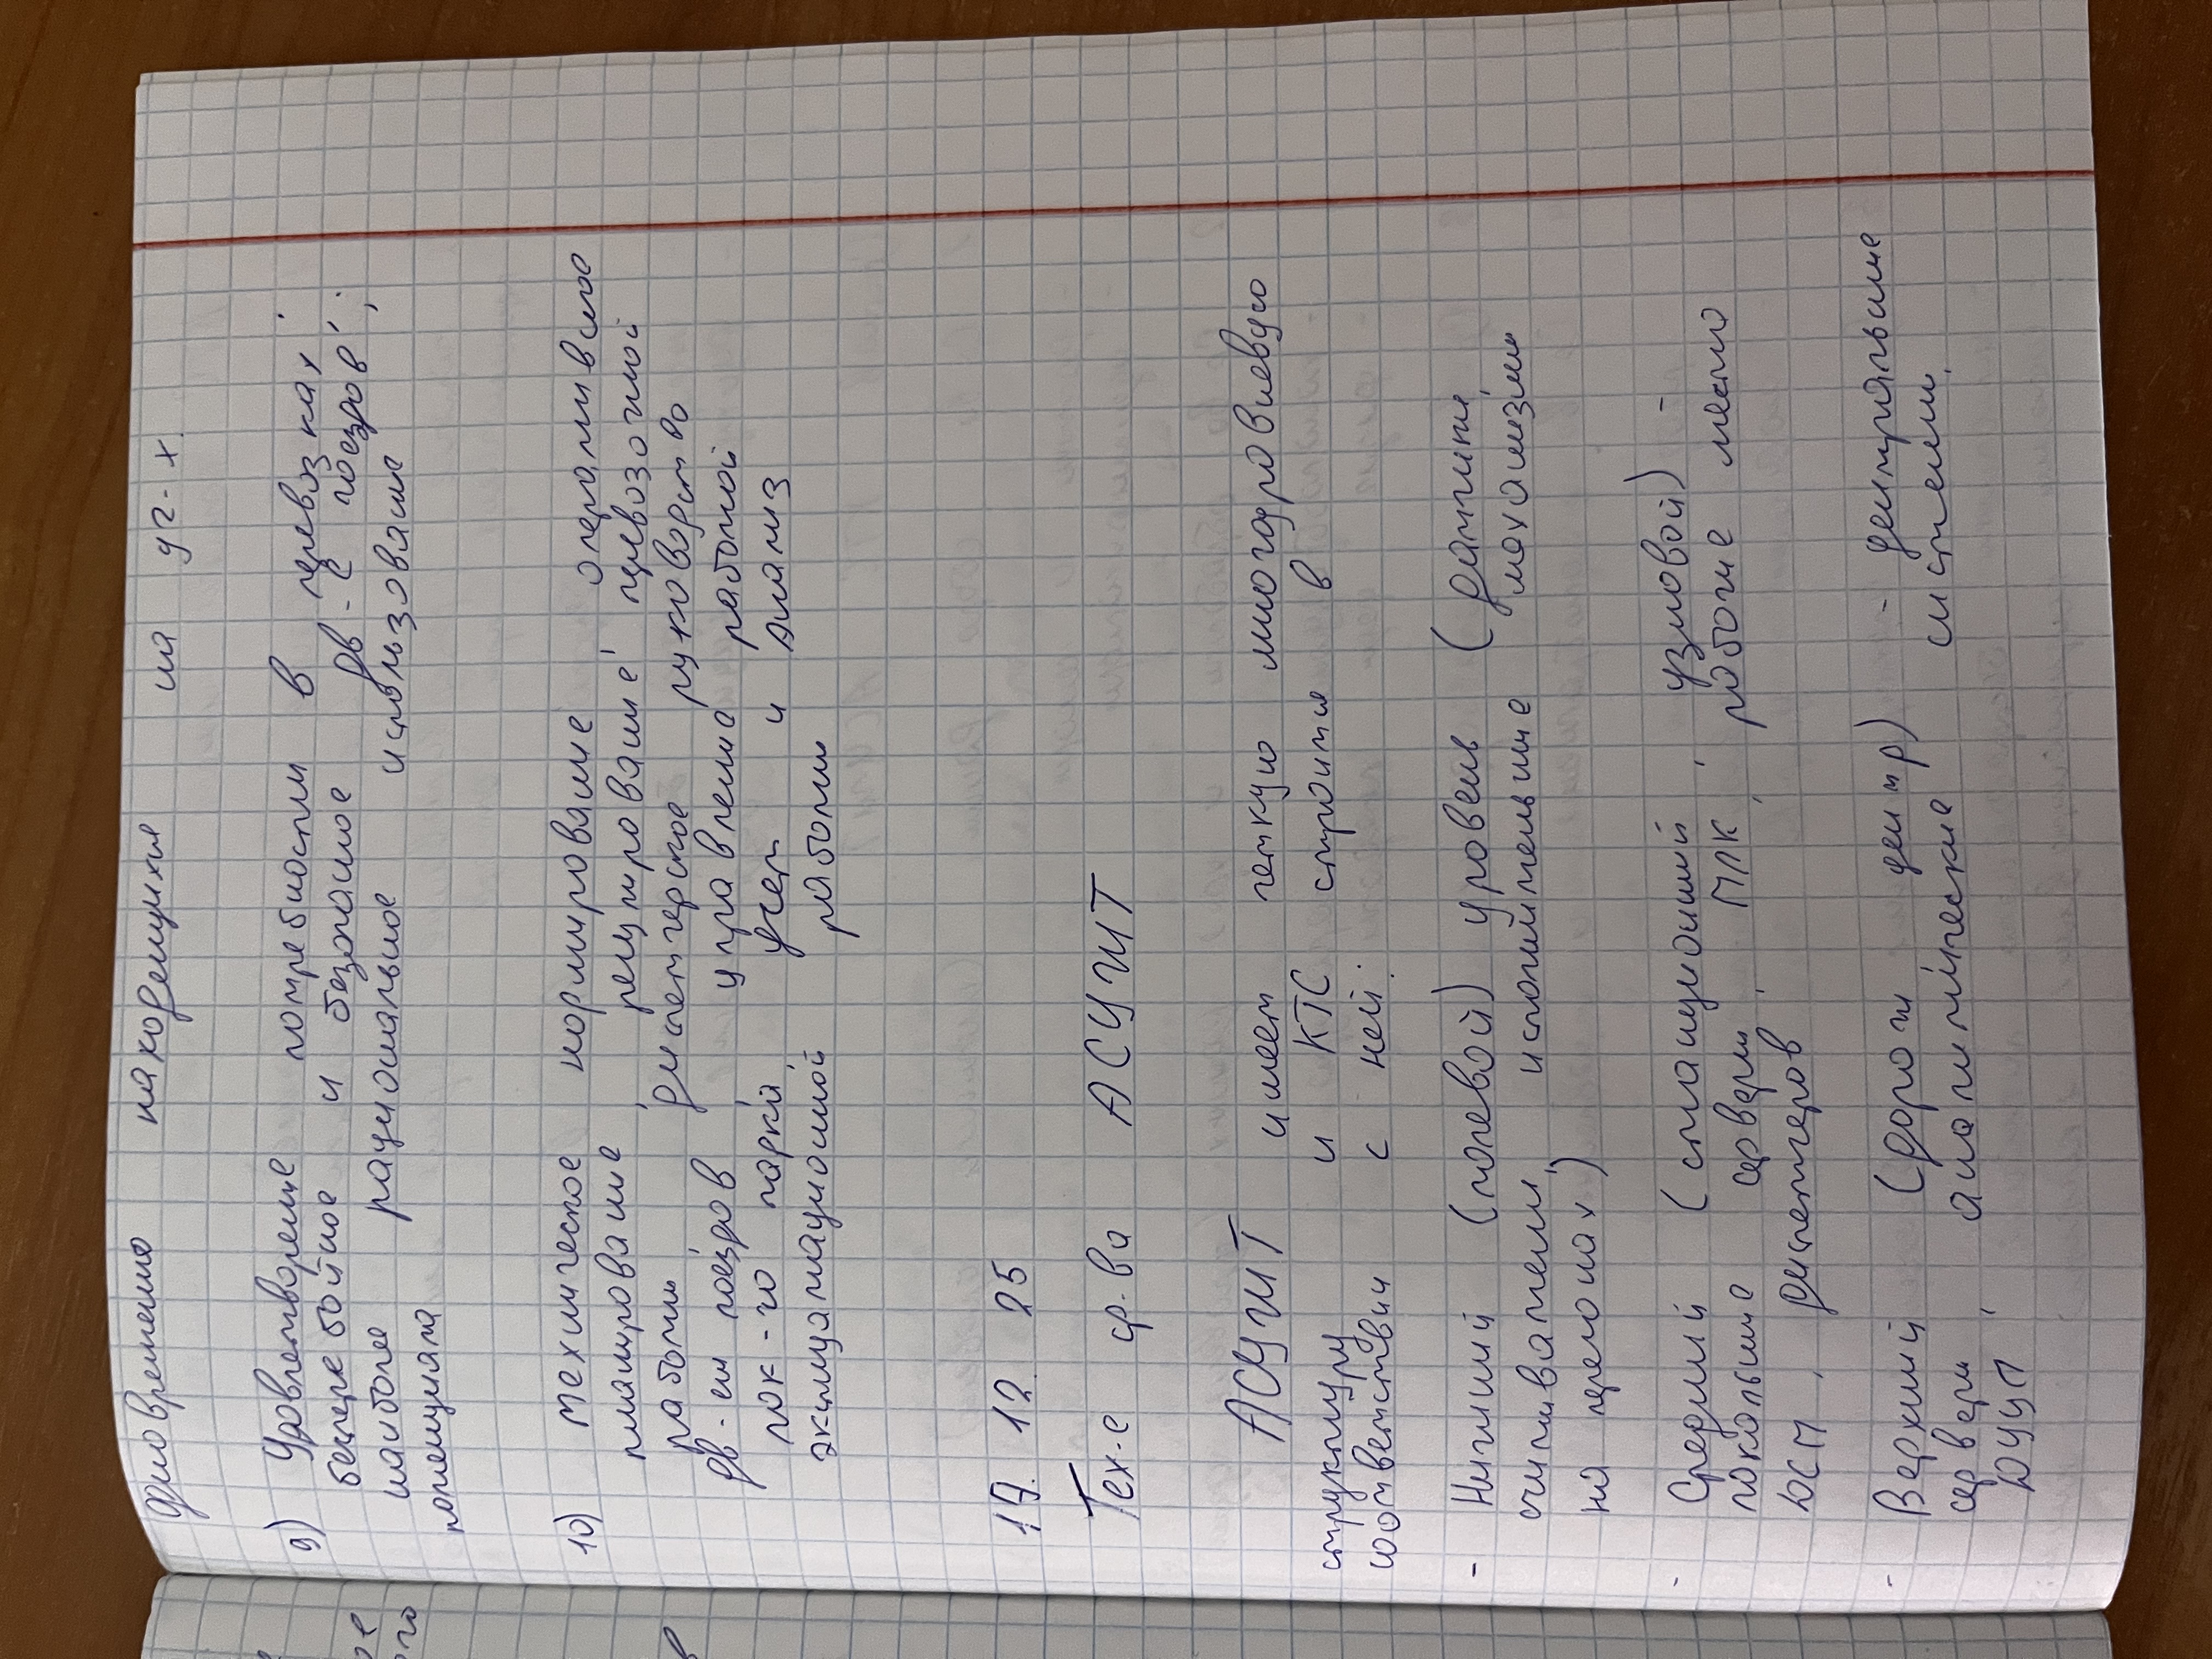 одновременно нахождения на уч-х
9) Удовлетворение потребности в перевозках,
бесперебойное и безопасное дв-е поездов,
наиболее рациональное использование;
потенциала
10) техническое нормирование оперативное
планирование, регулирование перевозочной
работы диспетчерское руководство
дв-ем поездов управление работой
лок-го парка, учет и Анализ
эксплуатационной работы
19. 12 25
Тех-е ср-ва АСУЖТ
АСУЖТ имеет четкую многоуровневую
структуру и КТС строится в
соответствии с ней:
- Нижний (полевой) уровень (датчики,
считыватели, исполнительные механизмы
на перегонах)
- Средний (станционный, узловой) -
локальные серверы, ПЛК, рабочие место
ДСП, диспетчеров
- Верхний (дорож центр) - центральные
серверы, аналитические системы,
ДЦУП